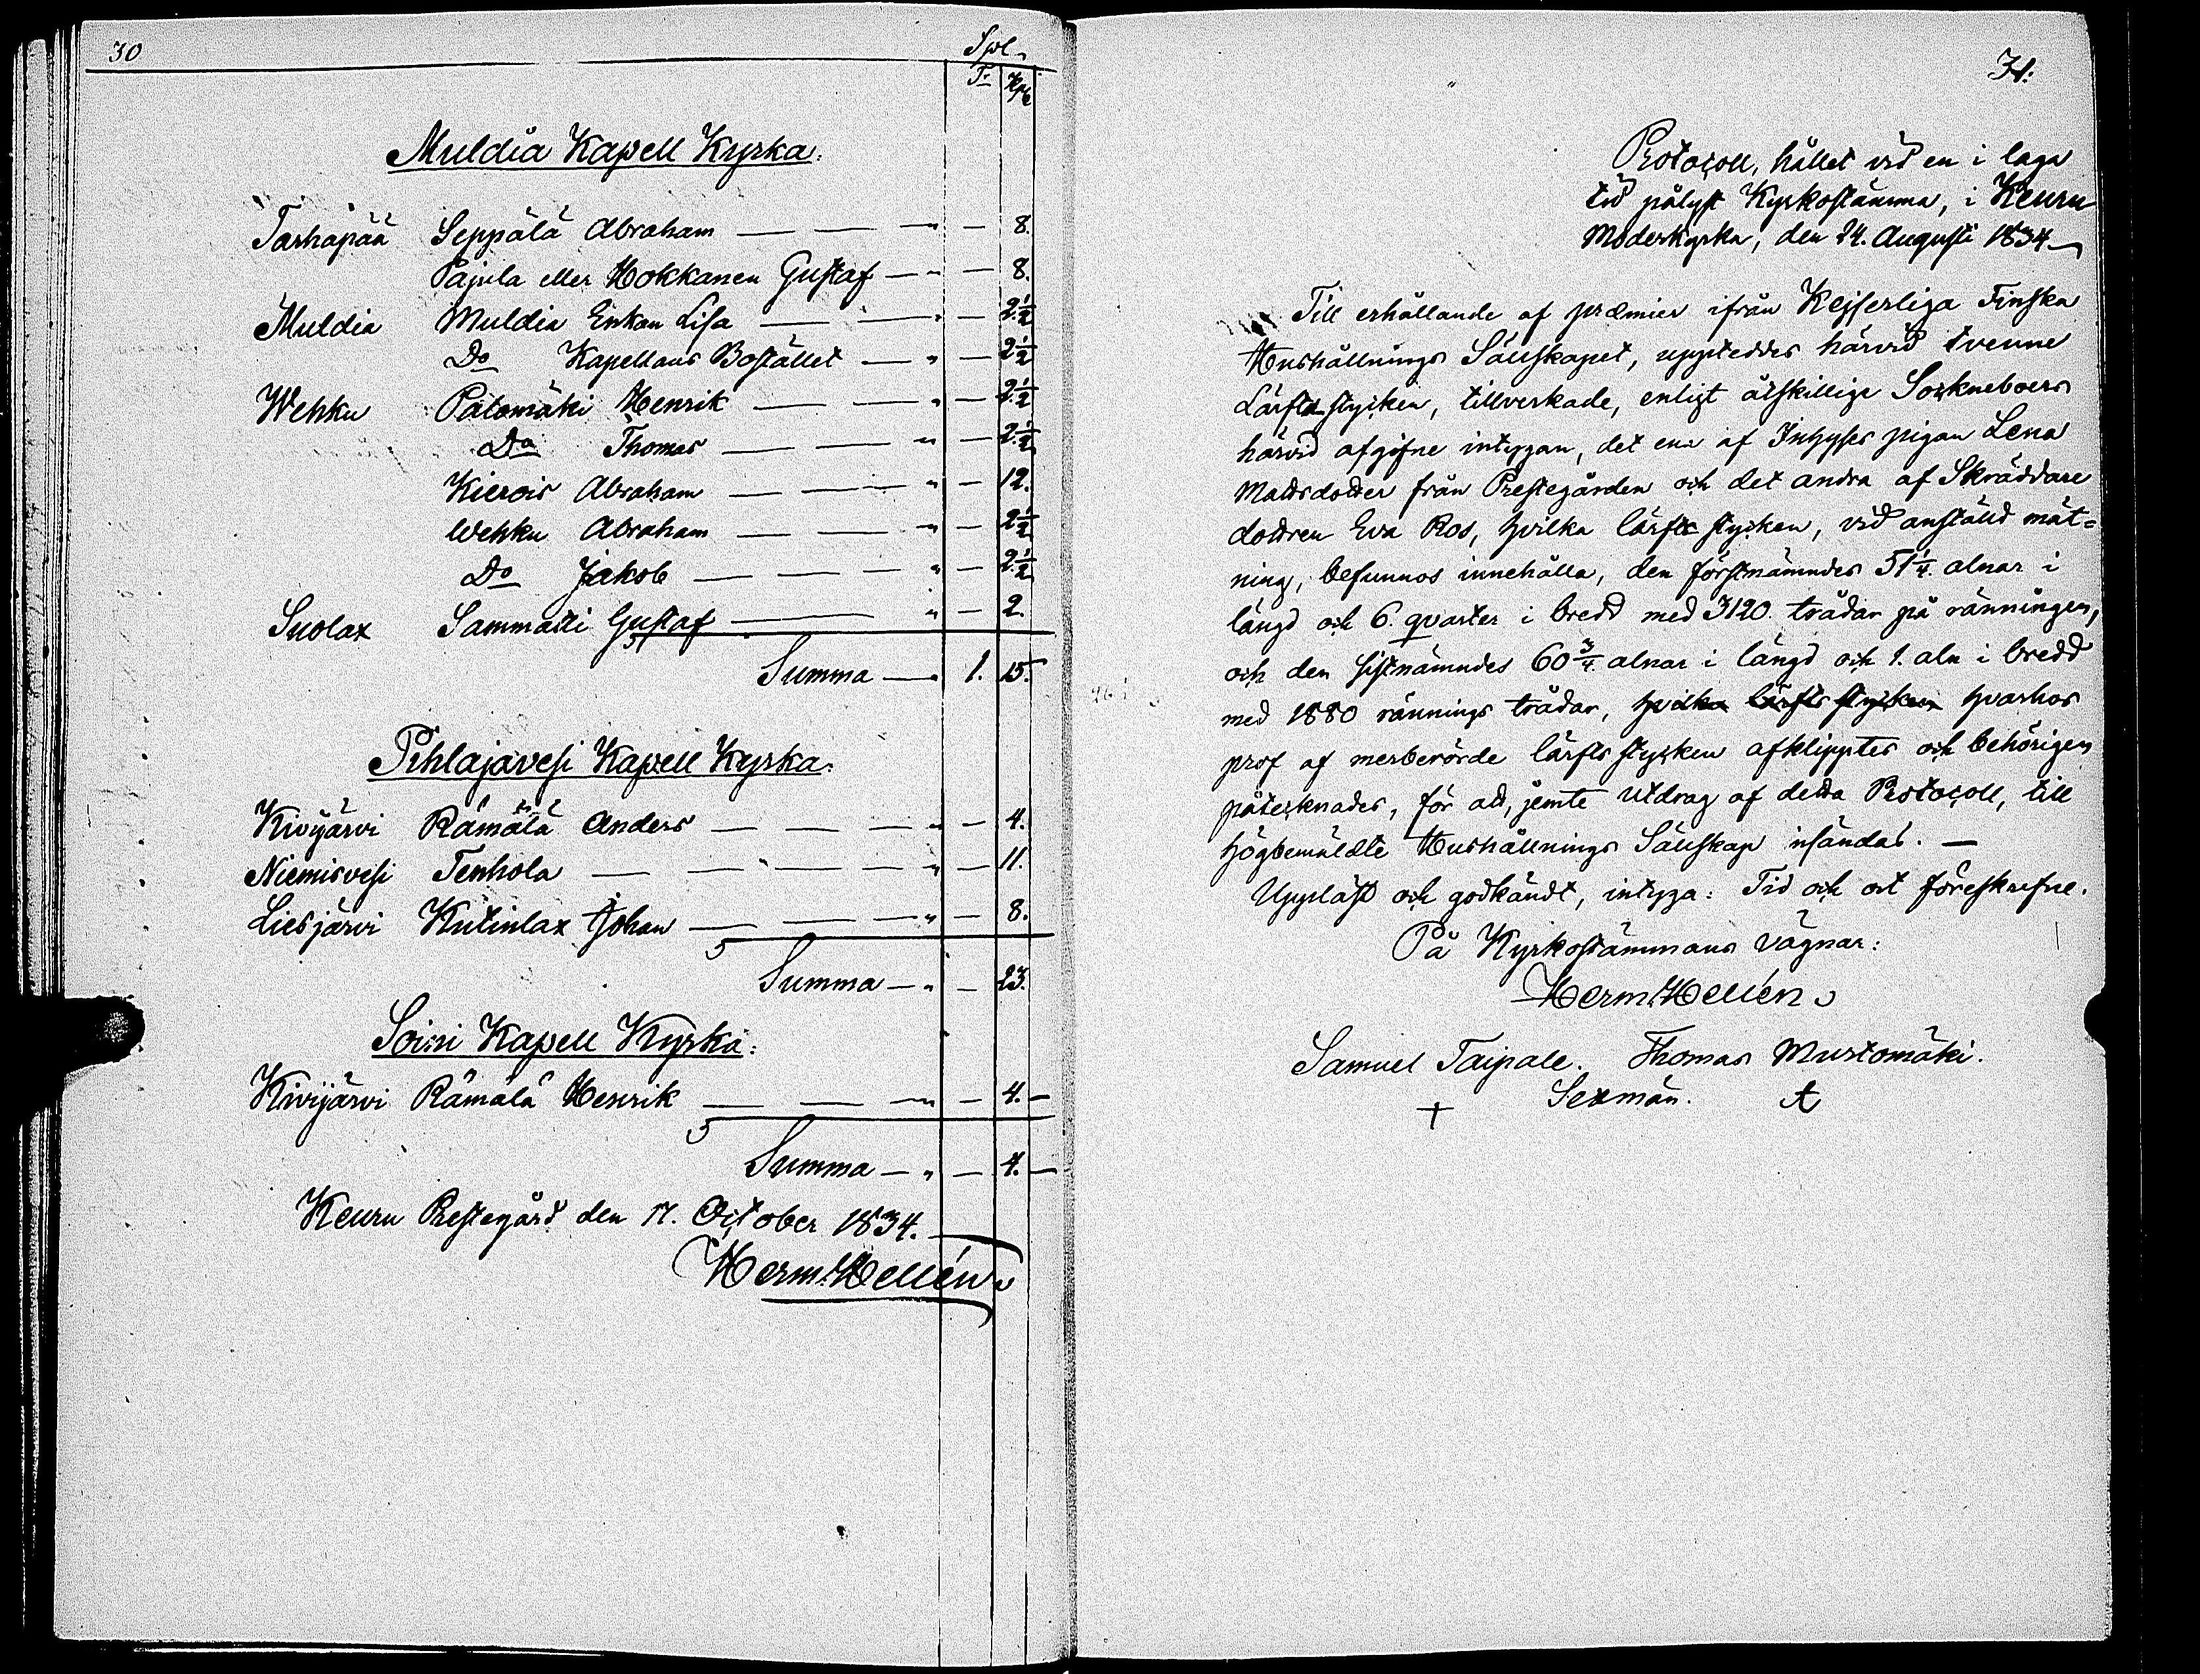 30
Spl.
T. Kpr
Muldia Kapell Kyrka.
Tarhapää Seppälä Abraham — — — " — 8.
Pajula eller Hokkanen Gustaf — " — 8.
Muldia Muldia Enkan Lisa — — " — 2 1/2
Do Kapellans Bostället — " — 2 1/2
Wehku Patomäki Henrik — — " — 2 1/2
Do Thomas — — " — 2 1/2
Kierois Abraham — — — " — 12.
Wehku Abraham — — — " — 2 1/2
Do Jakob — — — — " — 2 1/2
Suolax Sammatti Gustaf — — " — 2.
Summa — 1. 15.
Pihlajavesi Kapell Kyrka.
Kivijärvi Rämälä Anders — — — " — 4.
Niemisvesi Tenhola — — — — — " — 11.
Liesjärvi Kutinlax Johan — — — " — 8.
Summa — " — 23.
Soini Kapell Kyrka.
Kivijärvi Rämälä Henrik — — — " — 4. —
Summa — " — 4. —
Keuru Prestegård den 17. October 1834.
Herm. Hellén
31.
Protocoll, hållet vid en i laga
tid pålyst Kyrkostämma, i Keuru
Moderkyrka, den 24. Augusti 1834
Till erhållande af præmier ifrån Kejserliga Finska
Hushållnings Sällskapet, uppteddes härvid tvenne
Lärfts stycken, tillverkade, enligt åtskillige Sockneboers
härvid afgifne intygan, det ena af Inhyses pigan Lena
Mattsdotter från Prestegården och det andra af Skräddare
dottren Eva Ros, hvilka lärfts stycken, vid anställd mät=
ning, befunnos innehålla, den förstnämndes 51 1/4. alnar i
längd och 6. qvarter i bredd med 3120. trådar på ränningen,
och den sistnämndes 60 3/4. alnar i längd och 1. aln i bredd
med 1880 rännings trådar, hvilka lärfts stycken hvarhos
prof af merberörde lärfts stycken afklipptes och behörigen
påtecknades, för att, jemte utdrag af detta Protocoll, till
högbemälte Hushållnings Sällskap insändas. —
Uppläst och godkändt, intyga: Tid och ort föreskrefne.
På Kyrkostämmans vägnar:
Herm. Hellén
Samuel Taipale. Thomas Mustomäki.
Sexmän.